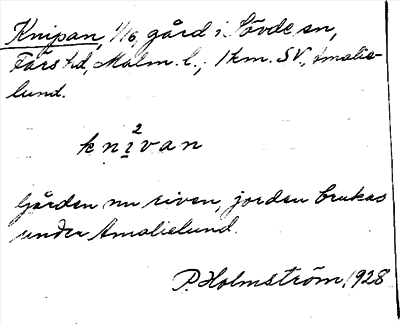 Knipan, 1/6, gård i Sövde sn,
Färs hd, Malm. l., 1 km. SV, Amalie-
lund.
kni²van
Gården nu riven, jorden brukas
under Amalielund.
P. Holmström, 1928